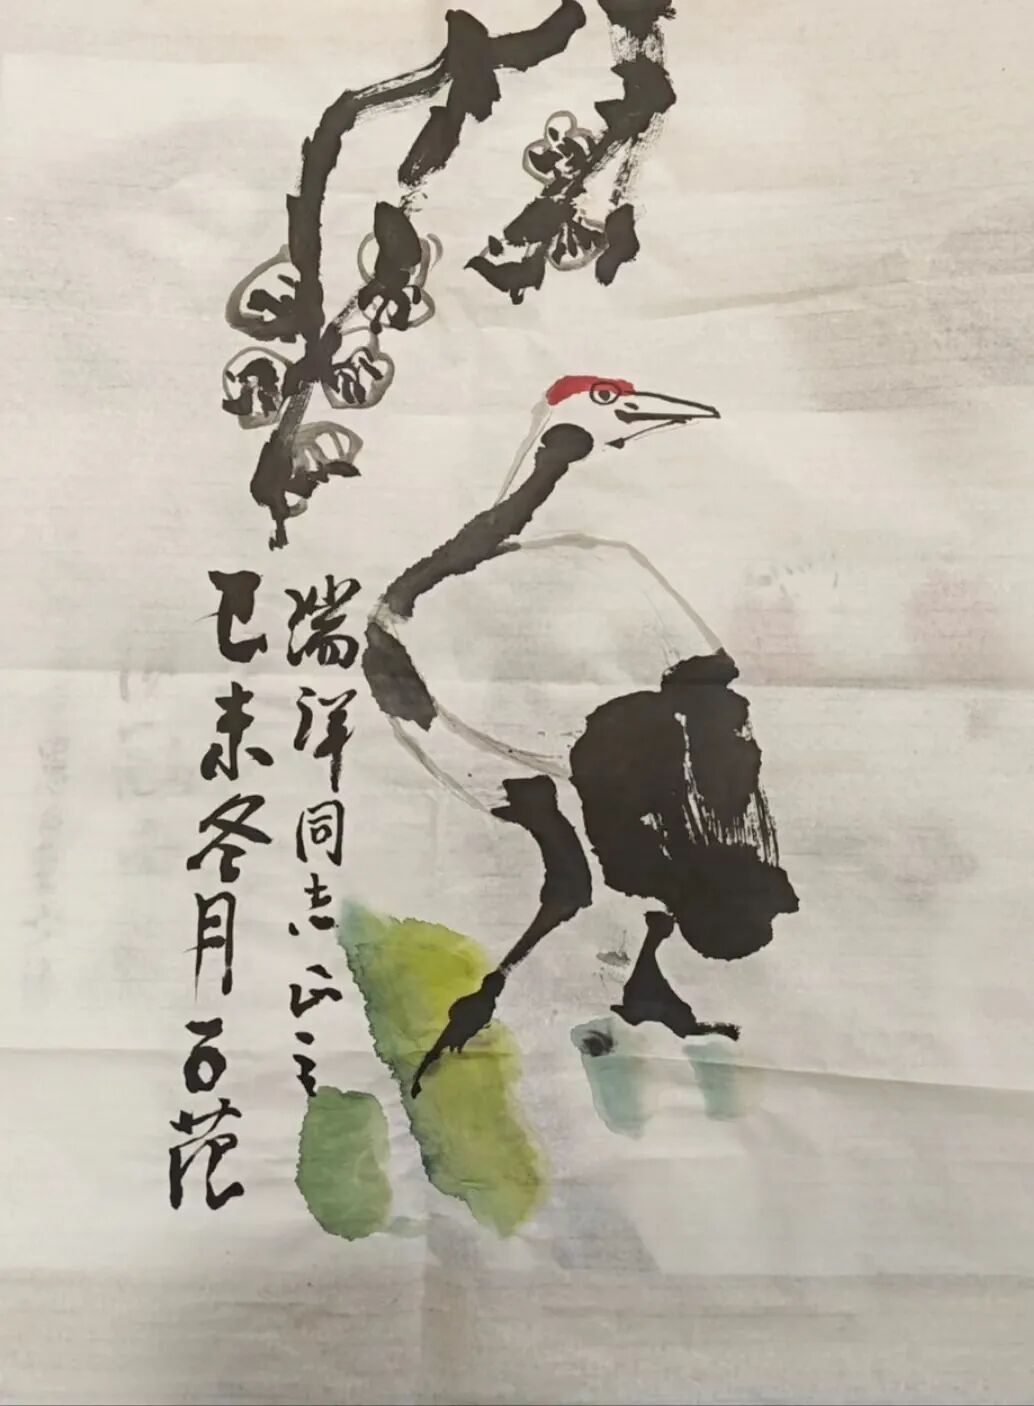 瑞洋同志正之
己未冬月石范